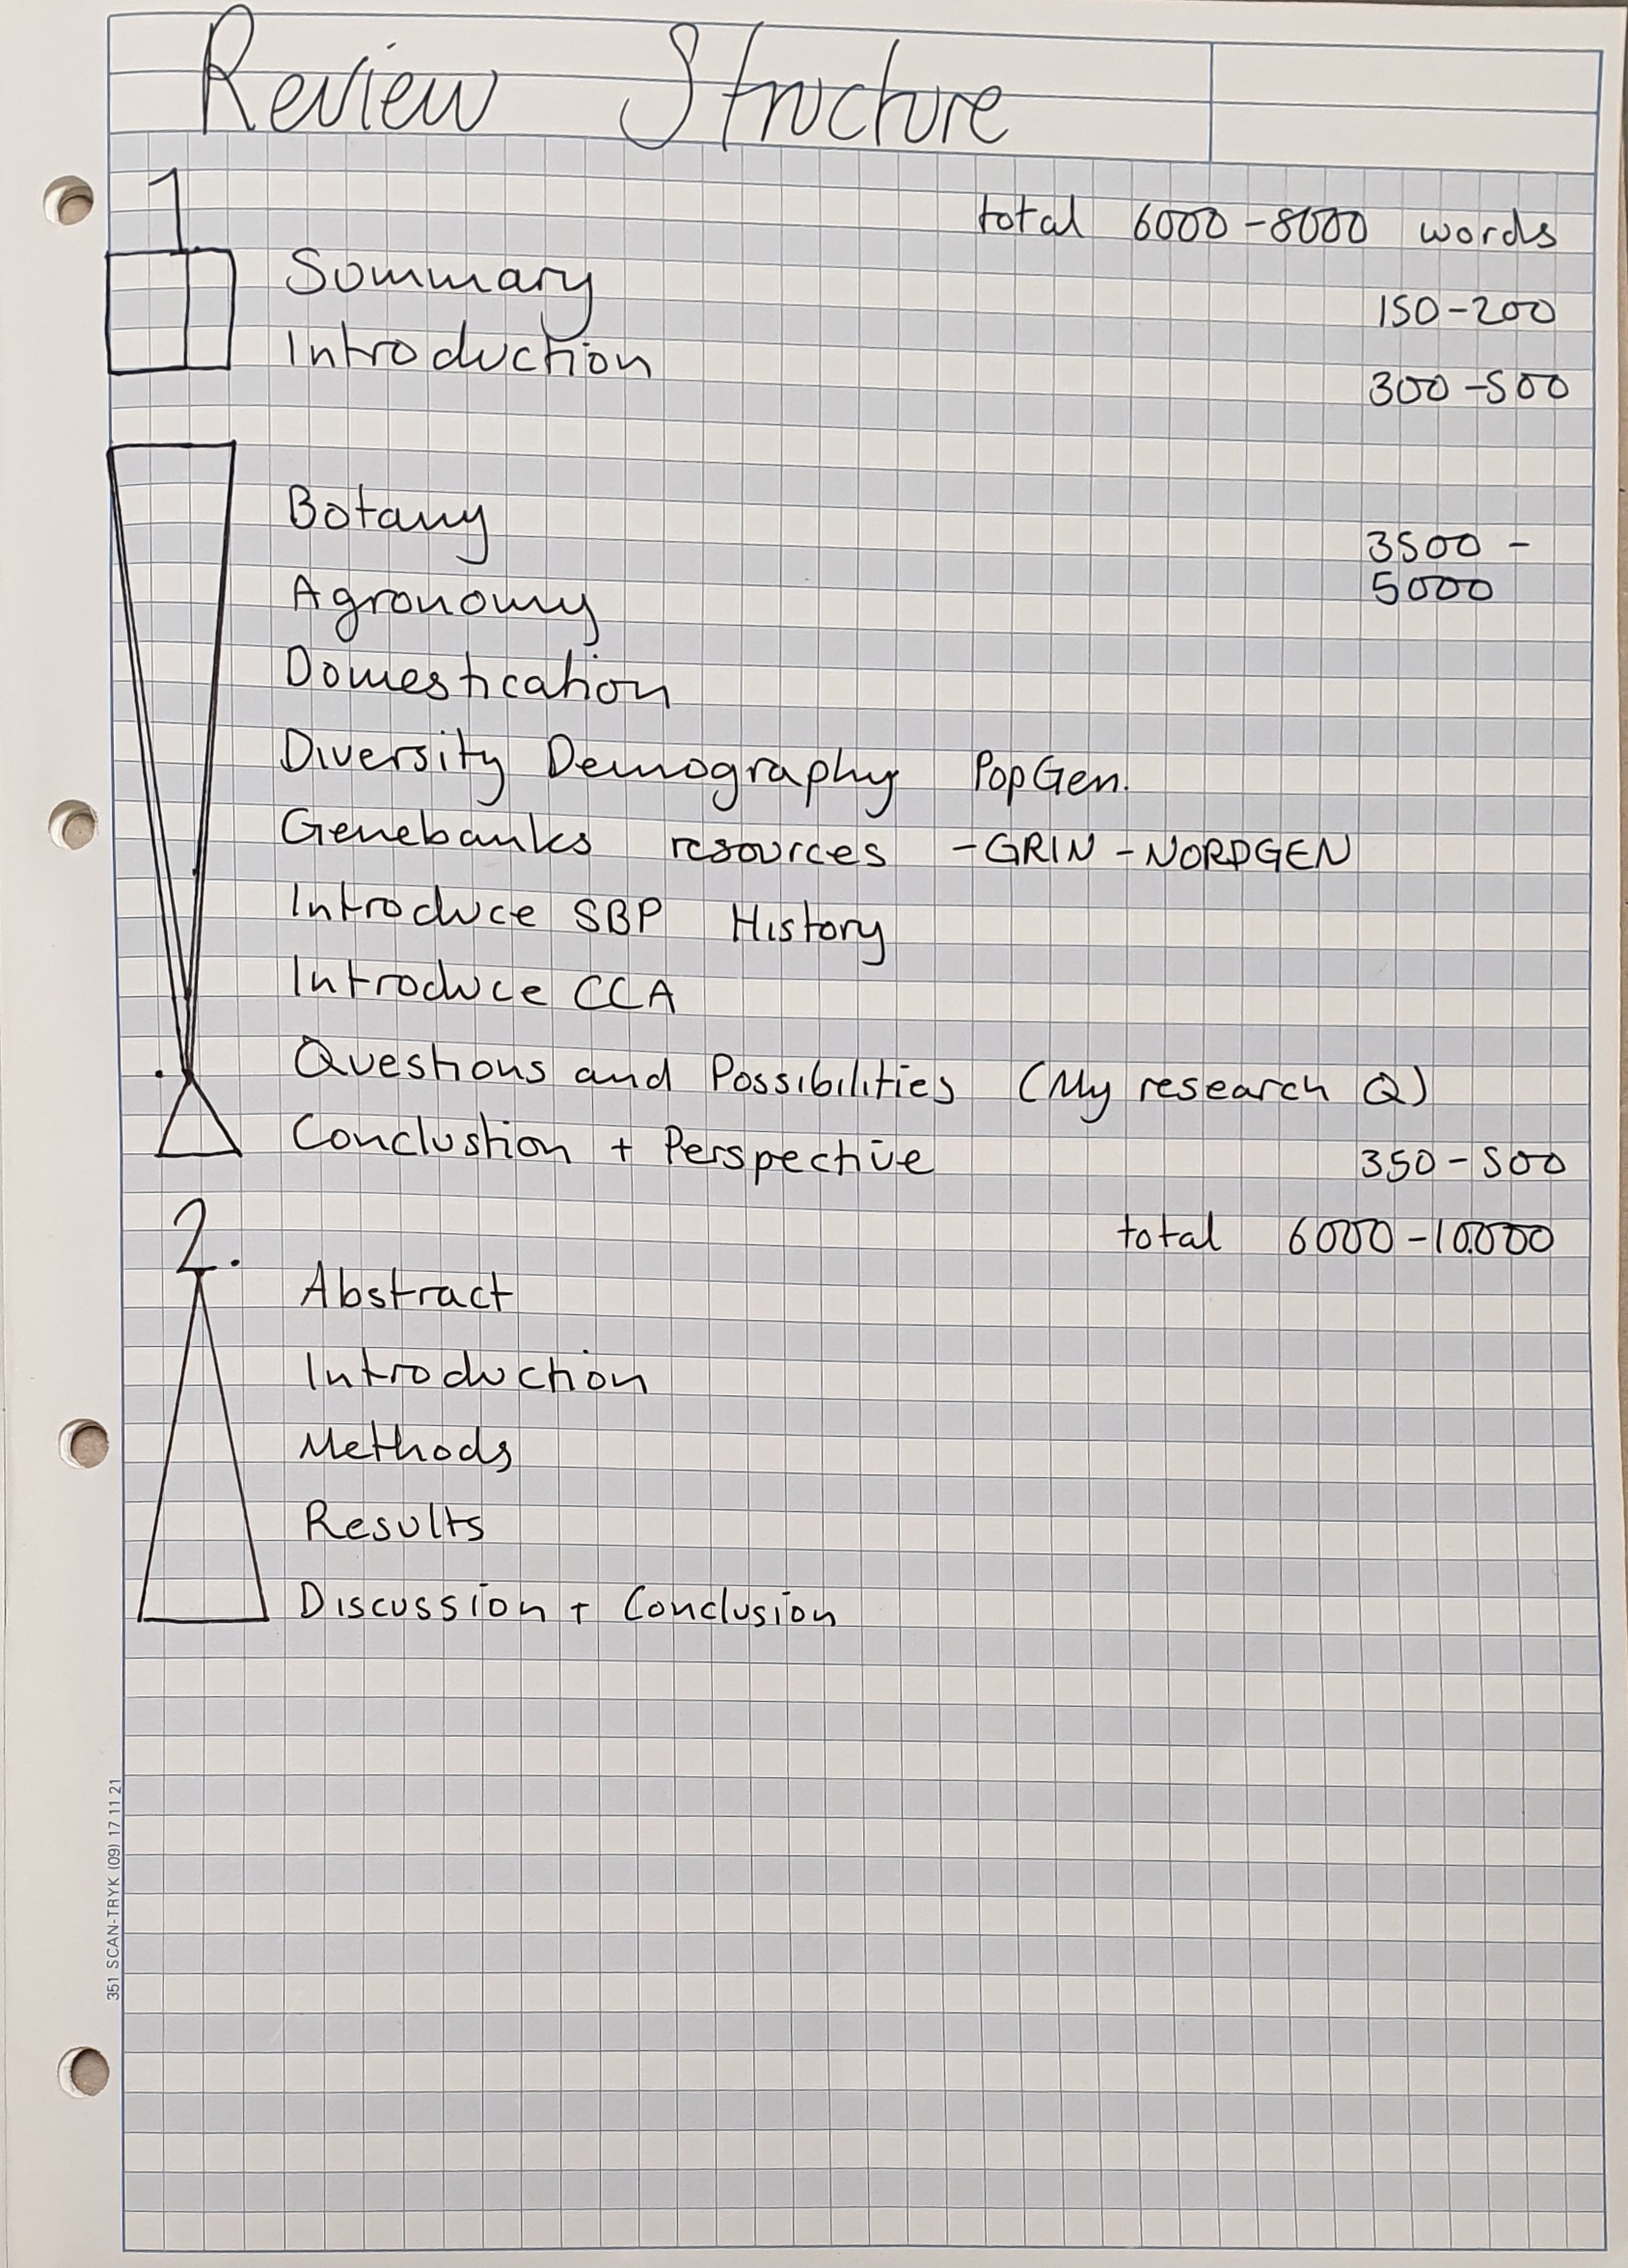 Review Structure
1
total 6000-8000 words
Summary
150-200
Introduction
300-500
Botany
3500 -
5000
Agronomy
Domestication
Diversity Demography PopGen.
Genebanks resources -GRIN -NORDGEN
Introduce SBP History
Introduce CCA
Questions and Possibilities (My research Q)
Conclustion + Perspective
350-500
2.
total 6000-10.000
Abstract
Introduction
Methods
Results
Discussion + Conclusion
351 SCAN-TRYK (09) 17 11 21